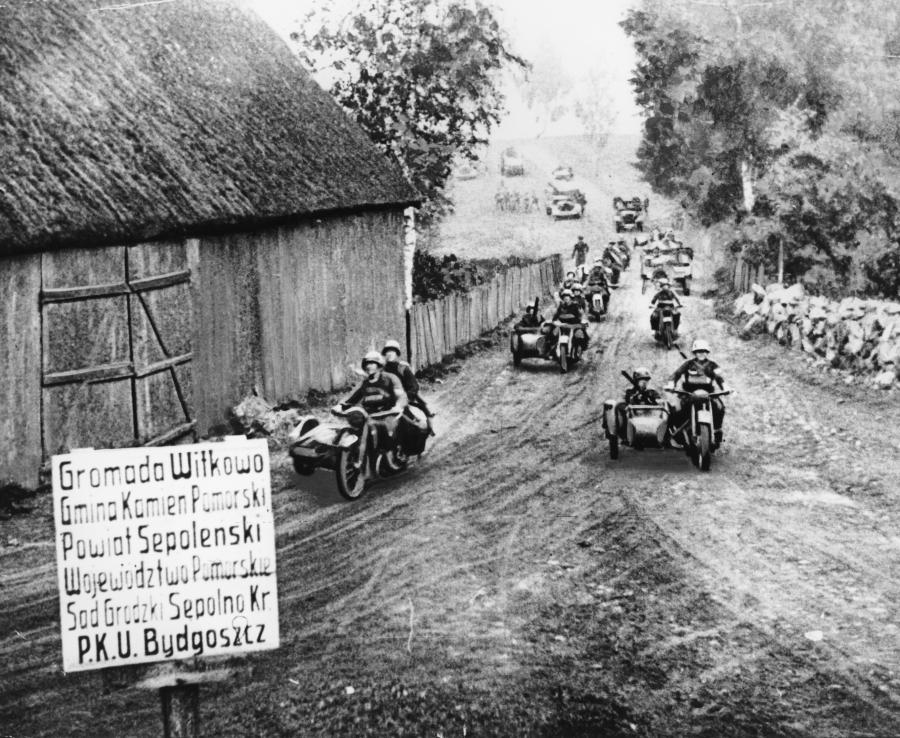 Gromada Witkowo
Gmina Kamien Pomorski
Powiat Sepolenski
Województwo Pomorskie
Sad Grodzki Sepolno Kr.
P.K.U. Bydgoszcz